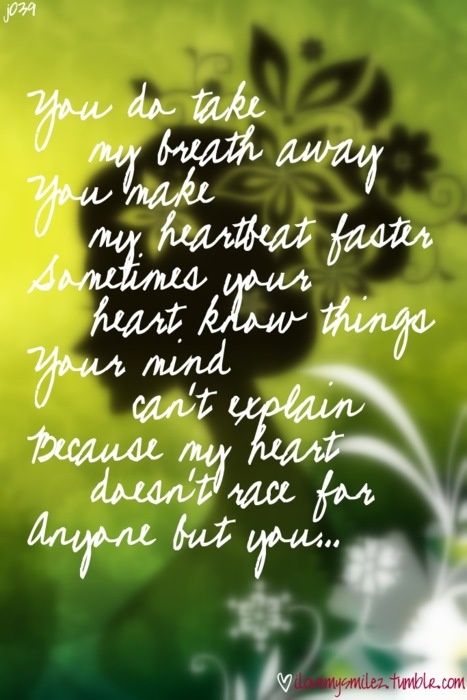 j039
You do take
my breath away
You make
my heartbeat faster
Sometimes your
heart know things
Your mind
can't explain
Because my heart
doesn't race for
Anyone but you...
♡ilovemysmilez.tumblr.com